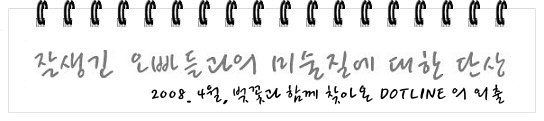 잘생긴 오빠들과의 미술질에 대한 단상
2008. 4월, 벚꽃과 함께 찾아온 DOTLINE의 외출